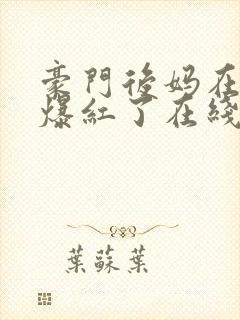 豪門後妈在
爆紅了在綫
葉蘇葉